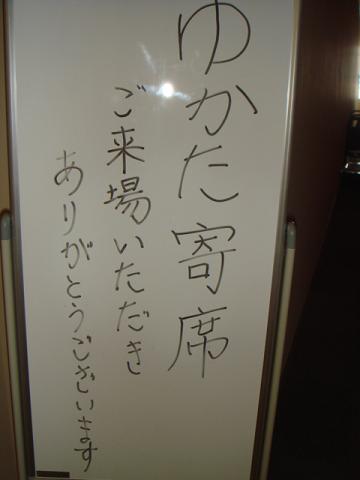 ゆかた寄席
ご来場いただき
ありがとうございます